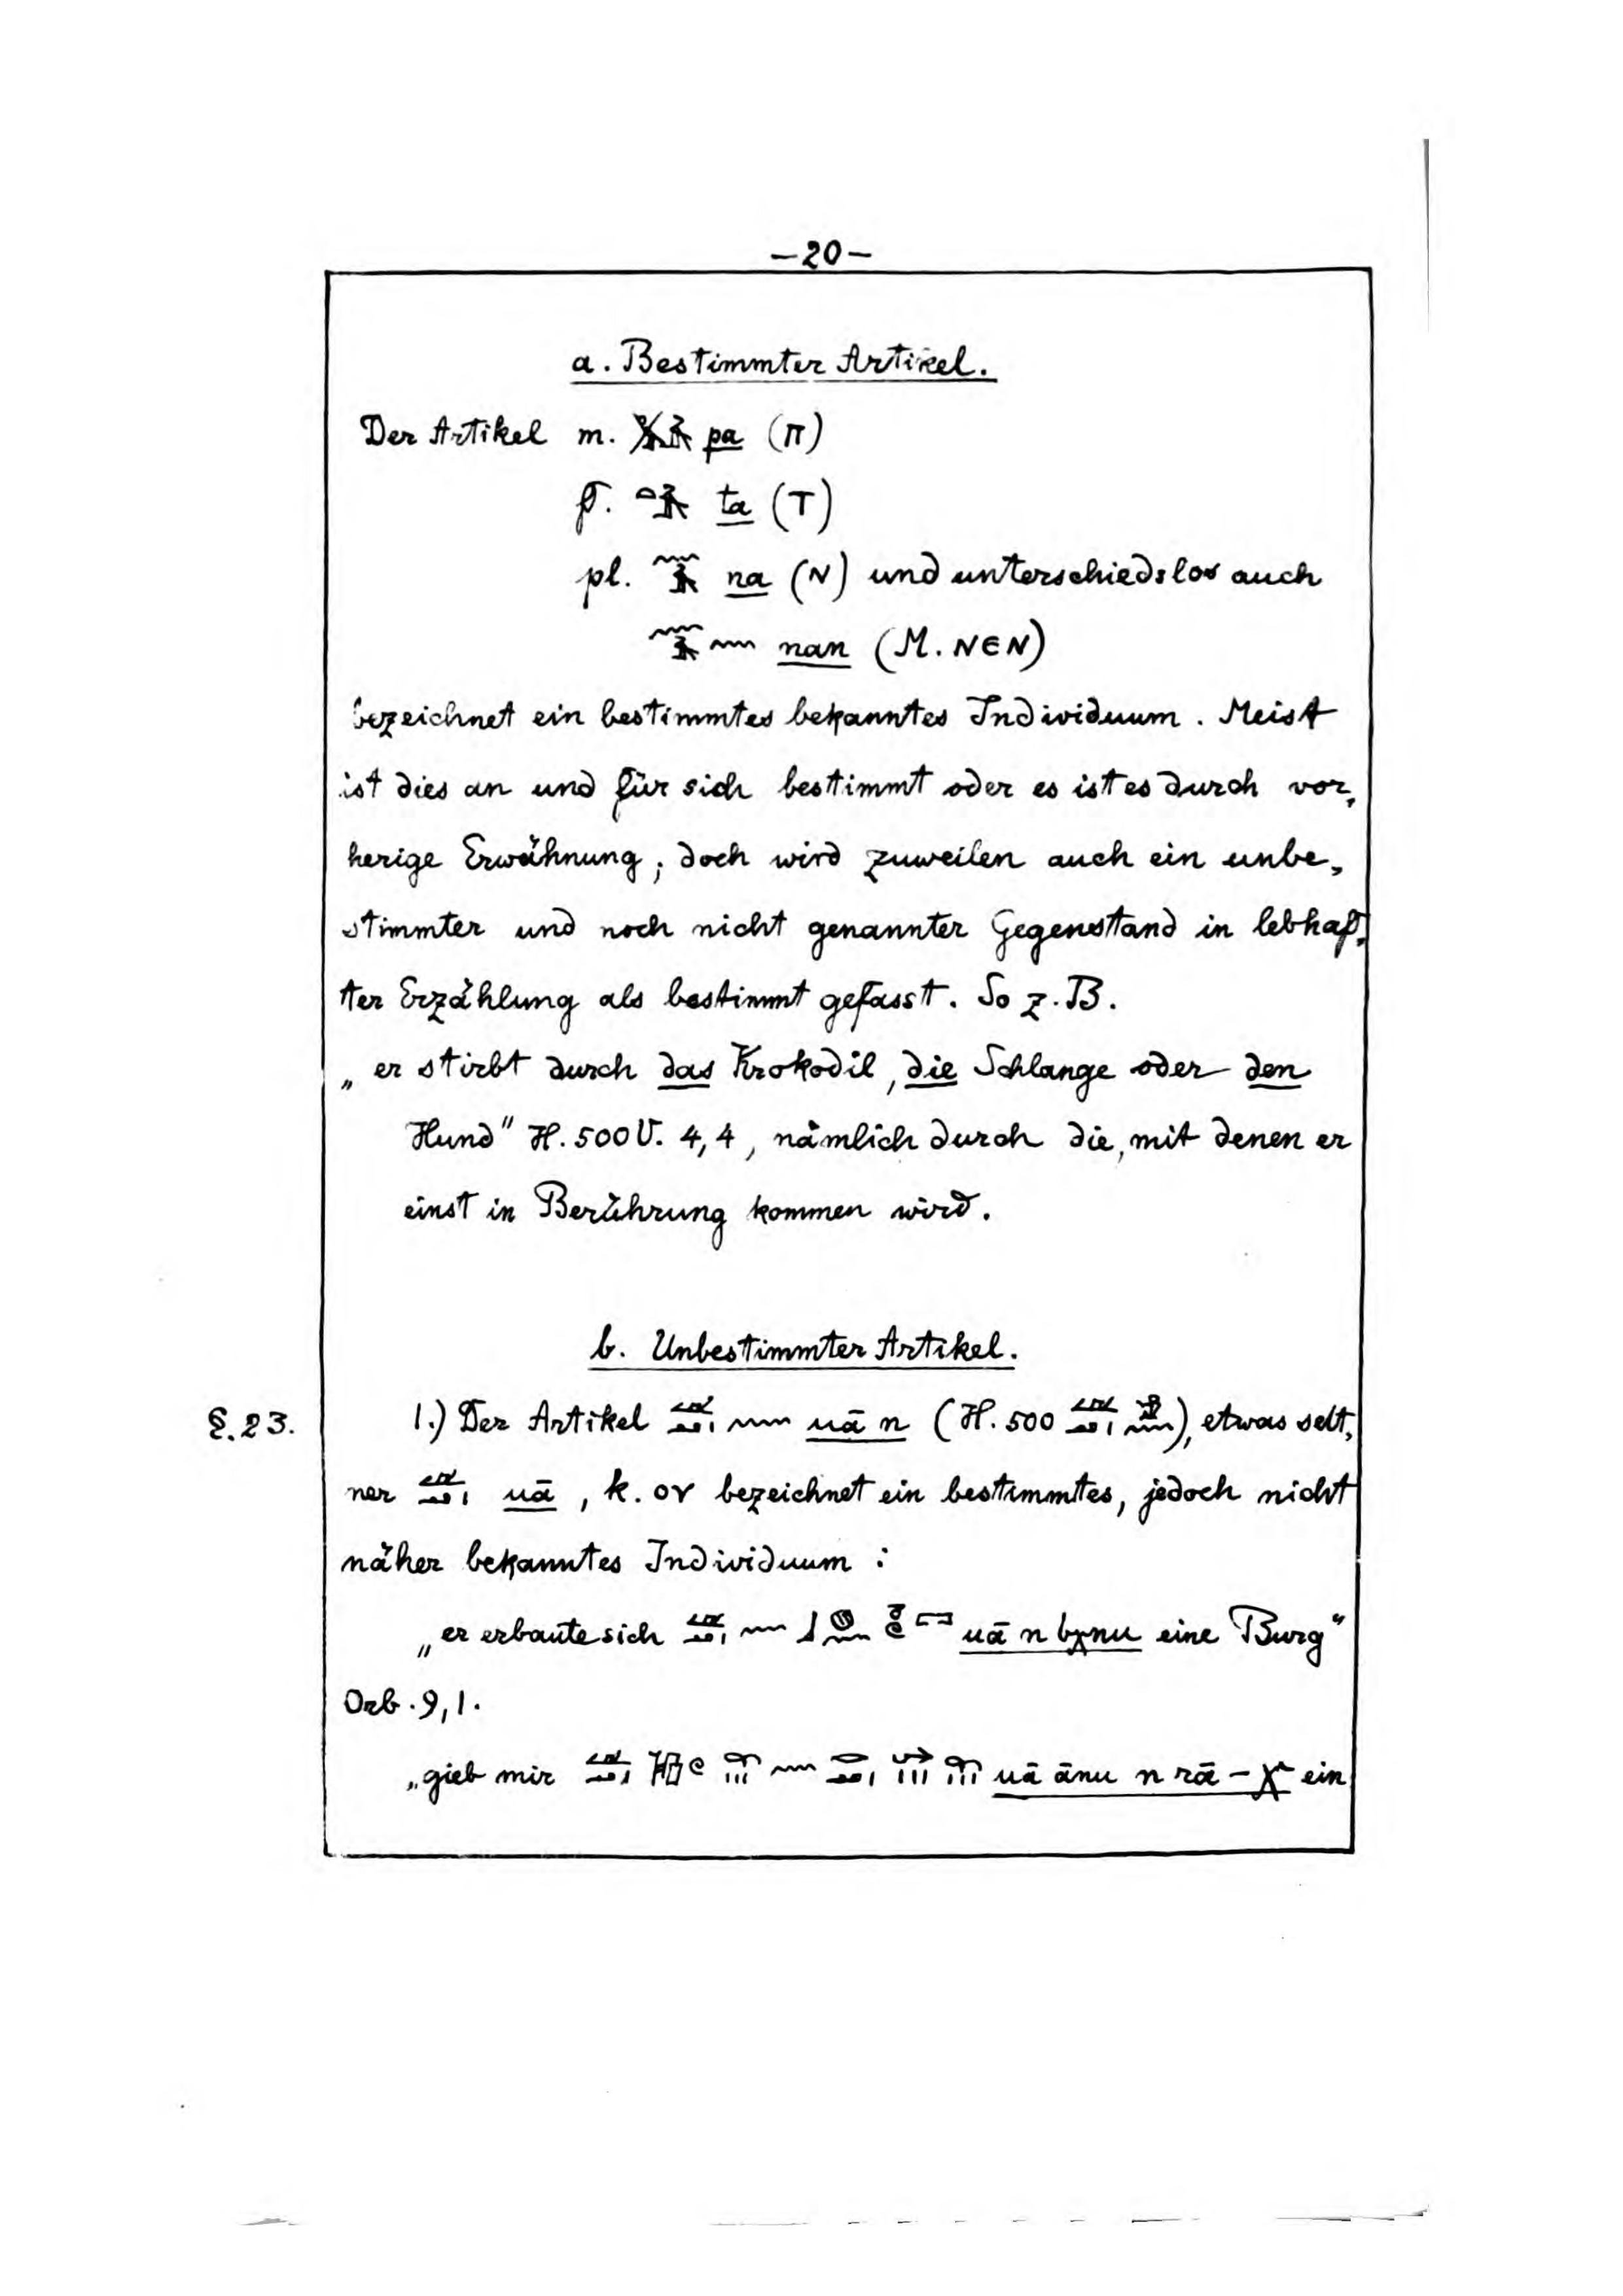 —20—
a. Bestimmter Artikel.
Der Artikel m. 𓅮𓄿 pa (π)
f. 𓏏𓄿 ta (T)
pl. 𓈖𓄿 na (N) und unterschiedslos auch
𓈖𓄿𓈖 nan (M. NЄN)
bezeichnet ein bestimmtes bekanntes Individuum. Meist
ist dies an und für sich bestimmt oder es ist es durch vor„
herige Erwähnung; doch wird zuweilen auch ein unbe„
stimmter und noch nicht genannter Gegenstand in lebhaf„
ter Erzählung als bestimmt gefasst. So z. B.
„er stirbt durch das Krokodil, die Schlange oder den
Hund" H. 500 V. 4, 4, nämlich durch die, mit denen er
einst in Berührung kommen wird.
b. Unbestimmter Artikel.
§. 23.
1.) Der Artikel 𓌡𓂝𓏤𓈖 uā n (H. 500 𓌡𓂝𓏤), etwas selt„
ner 𓌡𓂝𓏤 uā, k. ογ bezeichnet ein bestimmtes, jedoch nicht
näher bekanntes Individuum :
„er erbaute sich 𓌡𓂝𓏤𓈖𓃀𓐍𓈖𓏌𓏲𓉐 uā n bχnu eine Burg"
Orb. 9, 1.
„gieb mir uā ānu n rā – χ ein